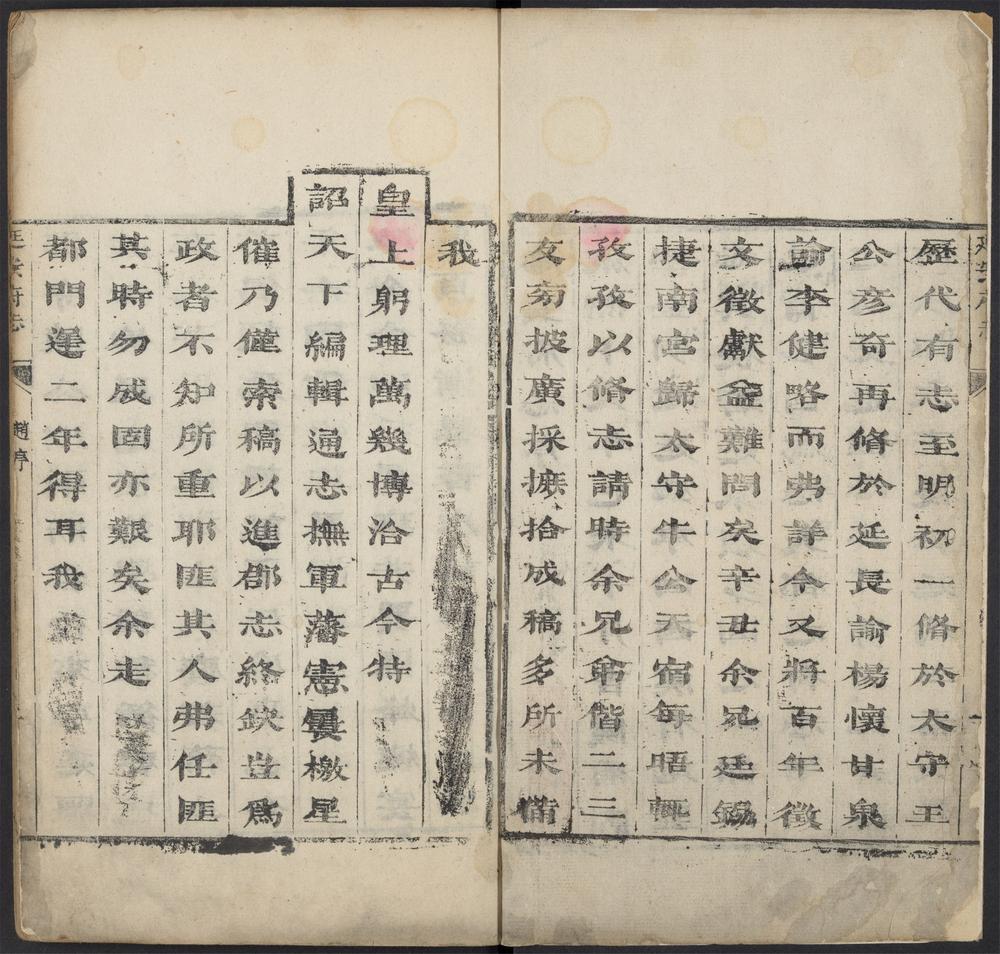 歷代有志至明初一脩於太守王
公彦奇再脩於延長諭楊懷甘泉
諭李健略而弗詳今又將百年徵
文徵獻益難問矣辛丑余兄廷錫
捷南宮歸太守牛公天宿每晤輒
孜孜以脩志請時余兄弟偕二三
友旁披廣採摭拾成稿多所未備
我
皇上躬理萬幾博洽古今特
詔天下編輯通志撫軍藩憲羽檄星
催乃僅索稿以進郡志終缺豈爲
政者不知所重耶匪其人弗任匪
其時勿成固亦艱矣余走
都門逢二年得耳我
延安府志
趙序